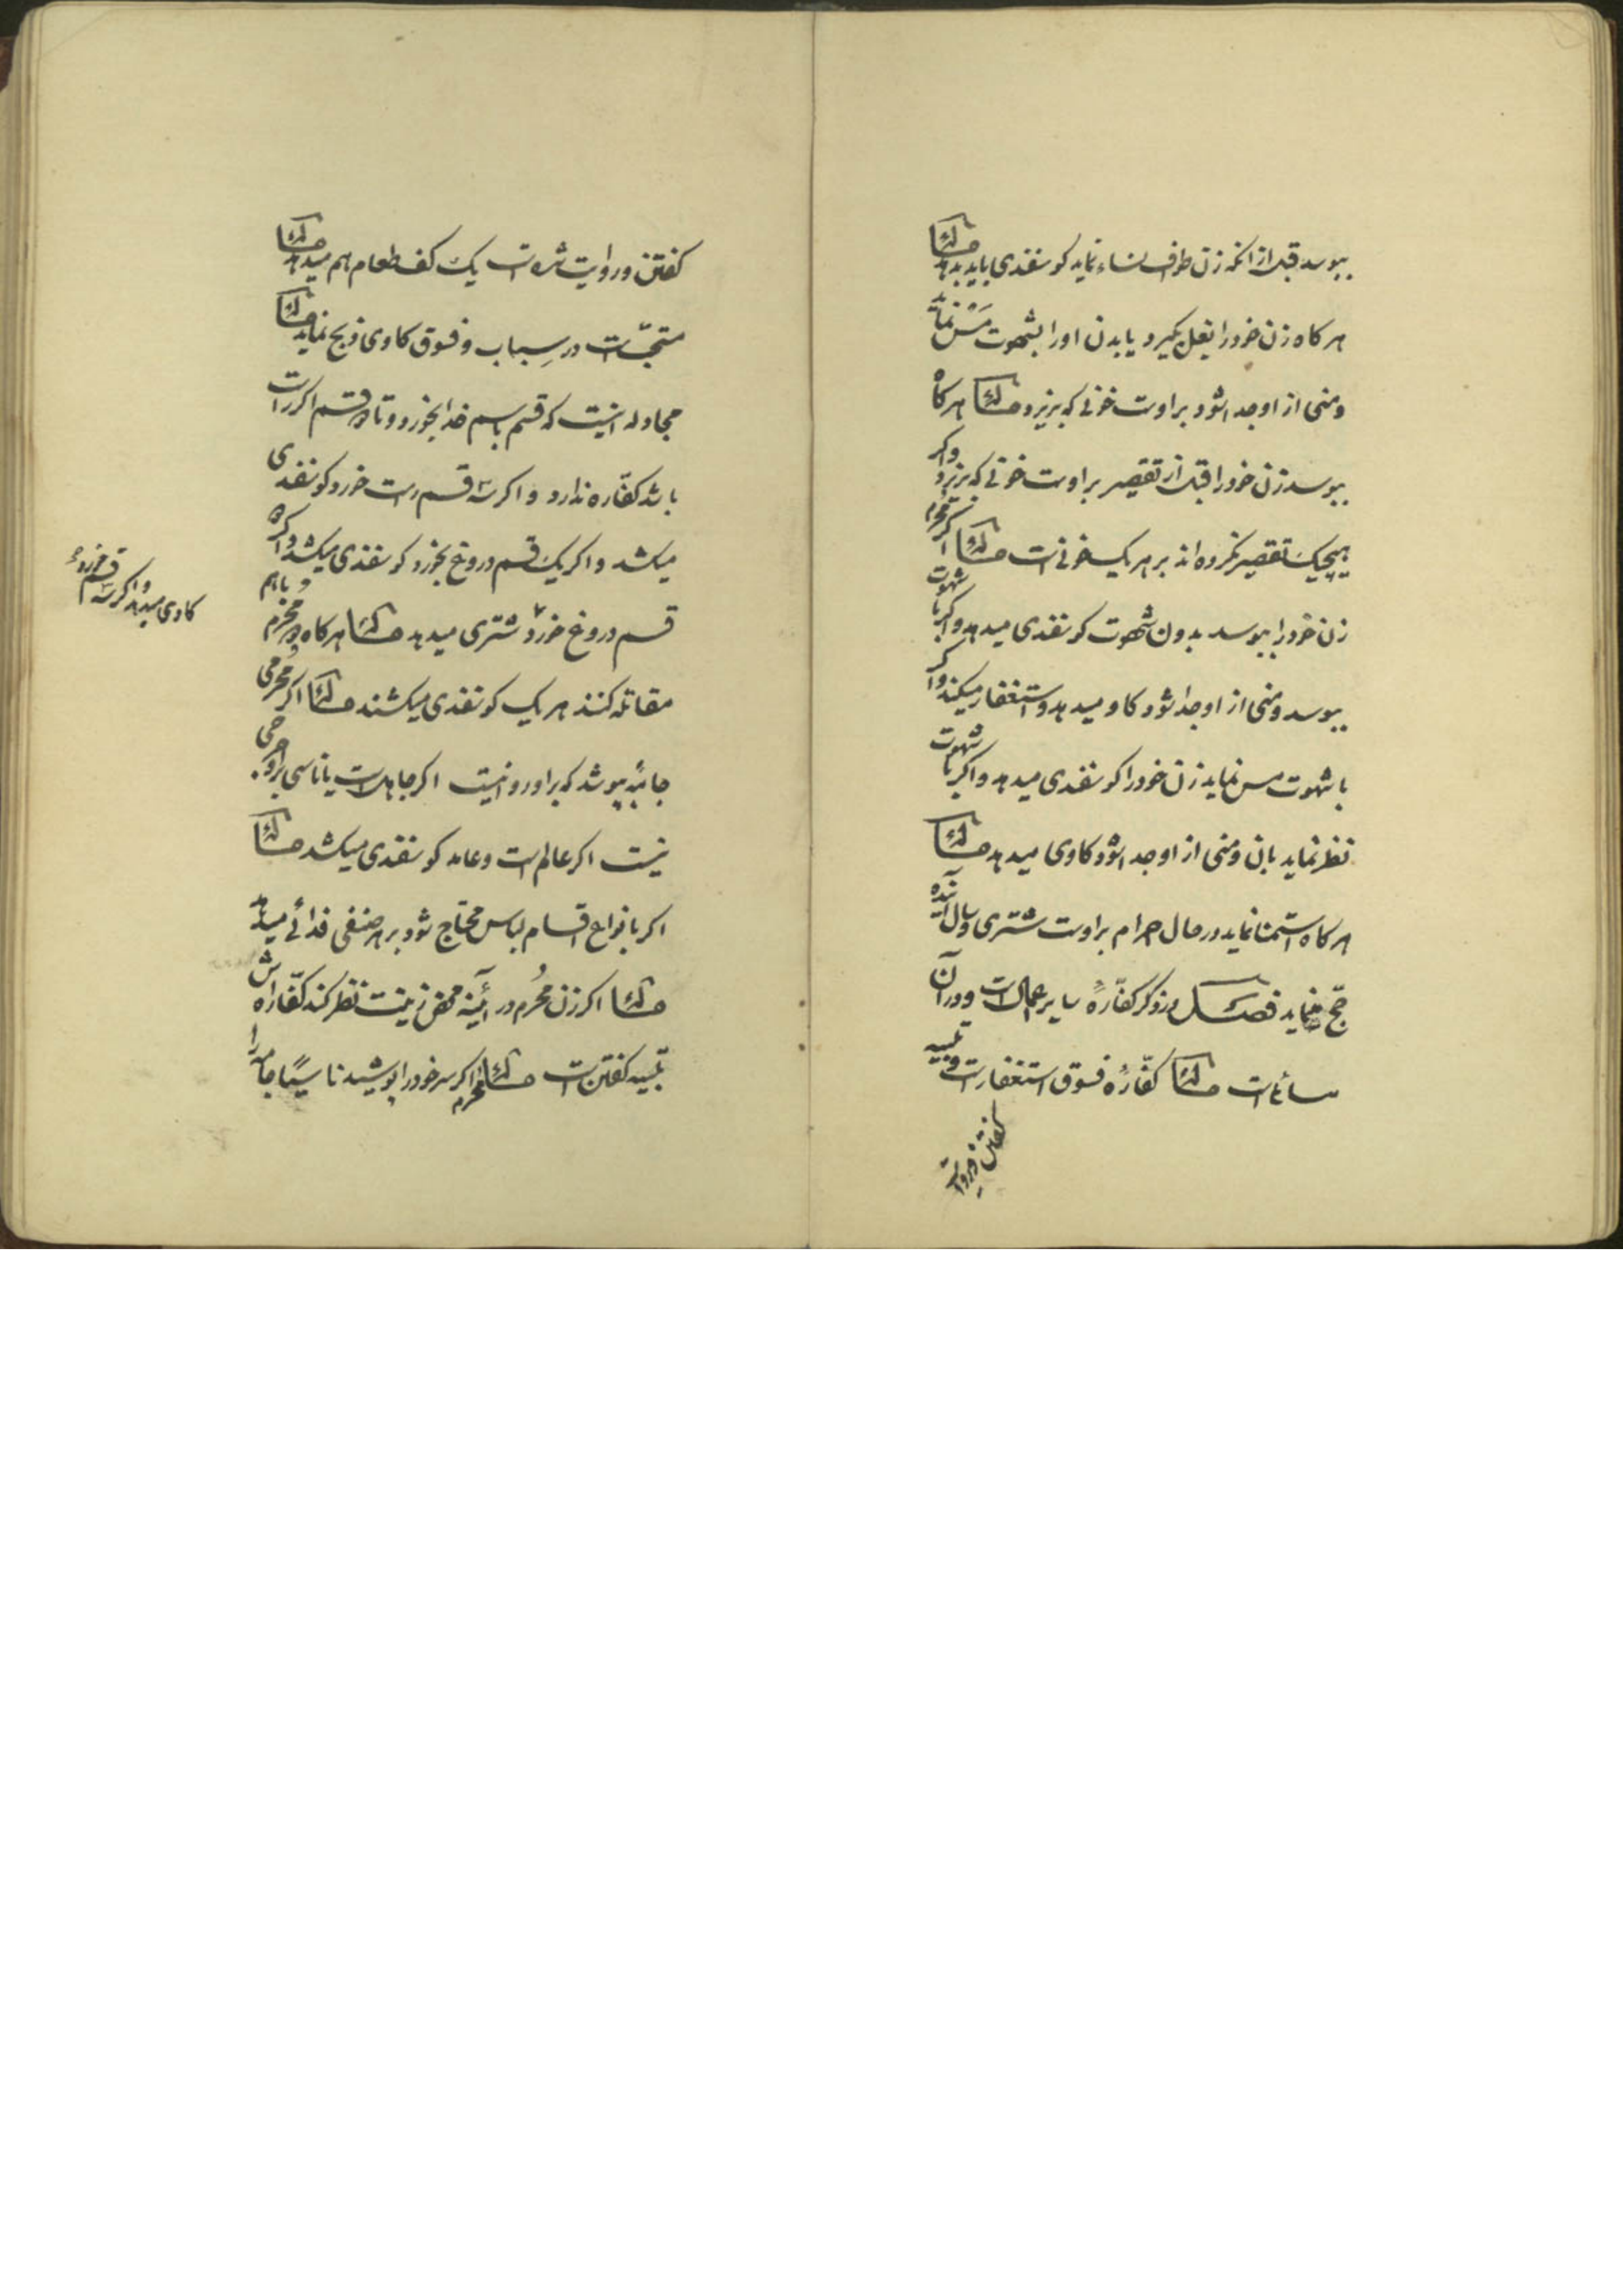 ببوسد قبل از انکه زن طواف نساء نماید کوسفندی باید بدهد مسئله
هر کاه زن خود را بغل بکیرد یا بدن او را بشهوت مَسّ نماید
و منی از او جدا شود بر اوست خونی که بریزد مسئله هر کاه
ببوسد زن خود را قبل از تقصیر بر اوست خونی که بریزد و اکر
هیچیک تقصیر نکرده اند بر هر یک خونی است مسئله اکر محرم
زن خود را ببوسد بدون شهوت کوسفندی میدهد و اکر با شهوت
ببوسد و منی از او جدا شود کاو میدهد و استغفار میکند و اکر
با شهوت مس نماید زن خود را کوسفندی میدهد و اکر با شهوت
نظر نماید بان و منی از او جدا شود کاوی میدهد مسئله
هر کاه استمنا نماید در حال احرام بر اوست شتری و سال آینده
حجّ نماید فصل در ذکر کفّارهٔ سایر اعمال است و در آن
مسائل است مسئله کفّارهٔ فسوق استغفار است و تلبیه
کفتن و روایت
کفتن و روایت شده است یک کف طعام هم میدهد مسئله
مستحبّ است در سِباب و فسوق کاوی ذبح نماید مسئله
مجادله اینست که قسم باسم خدا بخورد و تا دو قسم اکر راست
باشد کفّاره ندارد و اکر سه قسم راست خورد کوسفندی
میکشد و اکر یک قسم دروغ بخورد کوسفندی میکشد و اکر دو
قسم دروغ خورد شتری میدهد مسئله هر کاه دو مُحرم با هم
مقاتله کنند هر یک کوسفندی میکشند مسئله اکر مُحرمی
جامهٔ بپوشد که بر او روا نیست اکر جاهل است یا ناسی بر او حرجی
نیست اکر عالم است و عامد کوسفندی میکشد مسئله
اکر بانواع اقسام لباس محتاج شود بر هر صنفی فدائی میدهد
مسئله اکر زن مُحرم در آئینه محض زینت نظر کند کفّاره اش
تلبیه کفتن است مسئله اکر محرم سر خود را پوشید ناسیًا جامه را
و اکر سه قسم خورد
کاوی میدهد